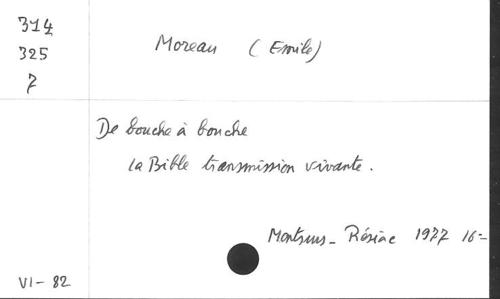 314
325
7
Moreau (Emile)
De bouche à bouche
la Bible transmission vivante.
Montsurs - Résiac 1977 16=
VI - 82